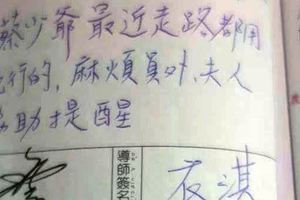 蔡少爺最近走路都用
行的,麻煩員外、夫人
助提醒
導師簽名
淇